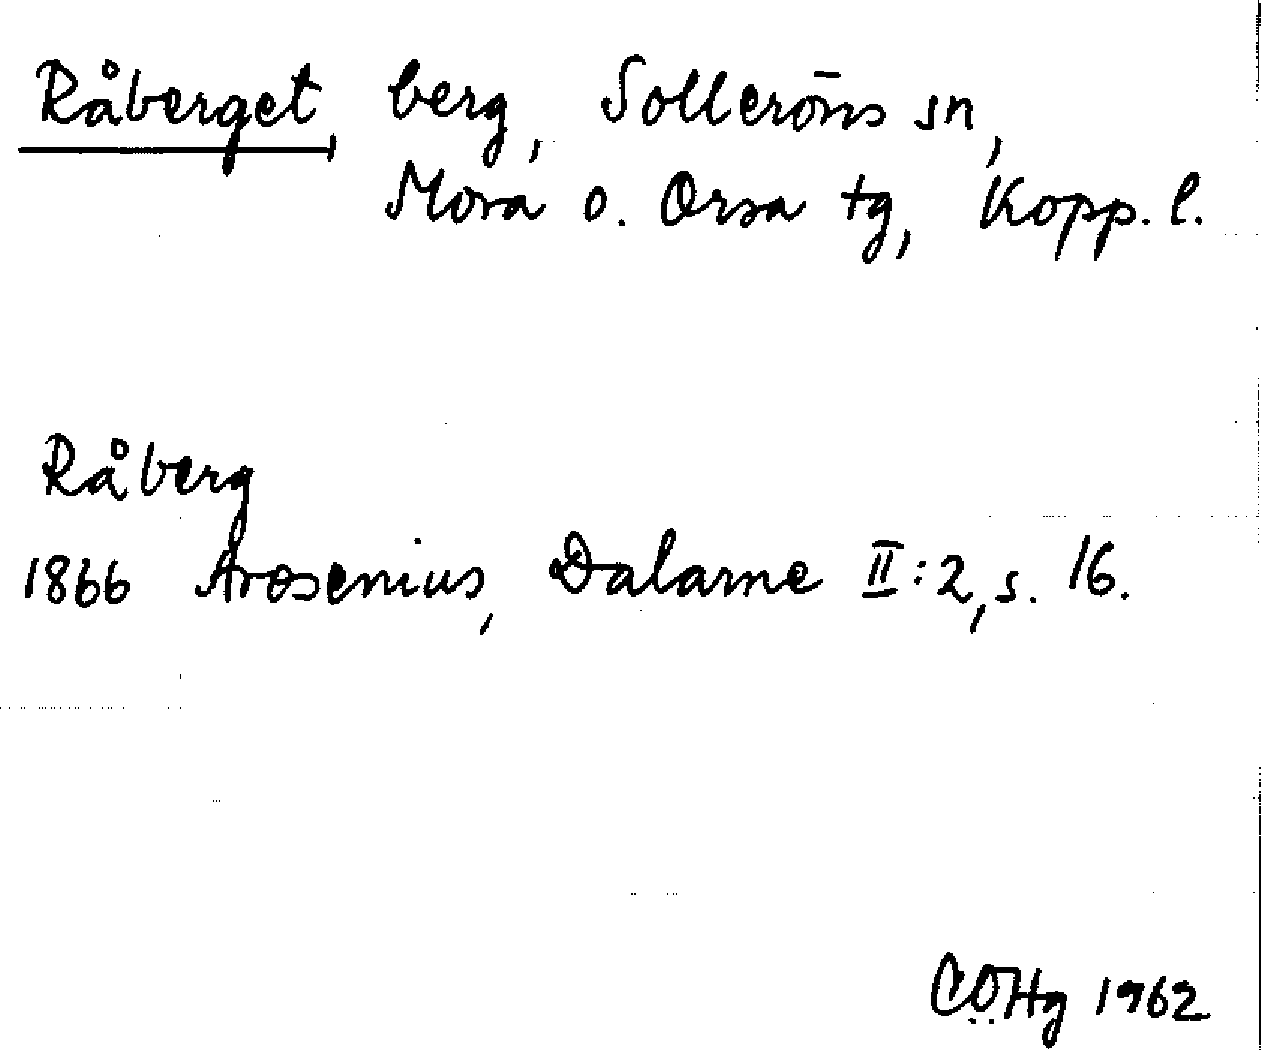 Råberget, berg, Solleröns sn,
Mora o. Orsa tg, Kopp. l.
Råberg
1866 Arosenius, Dalarne II:2, s. 16.
CÖHg 1962